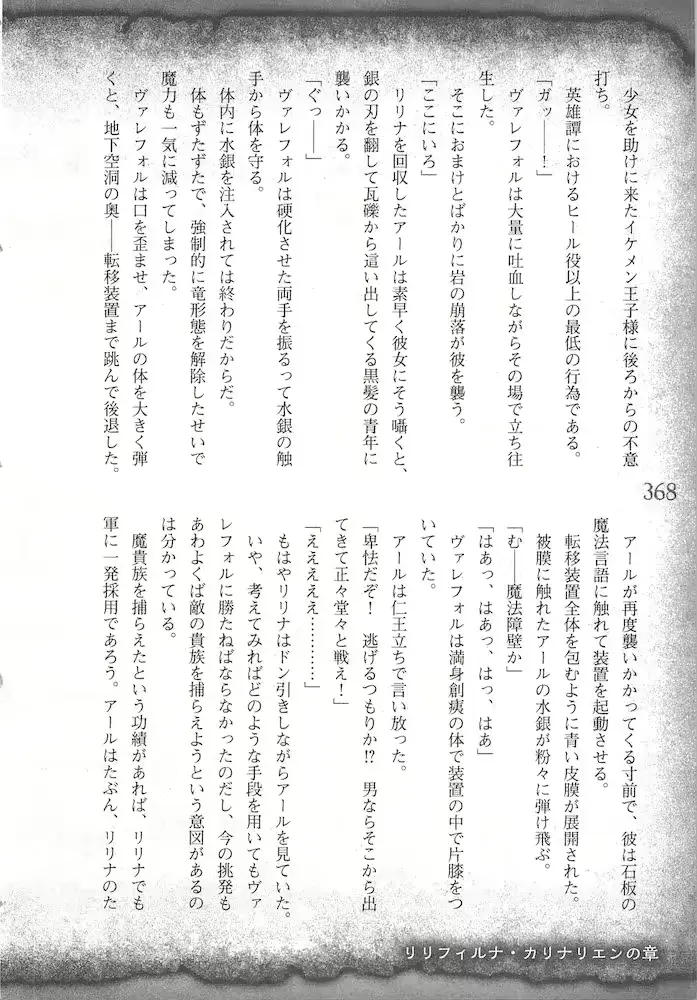 少女を助けに来たイケメン王子様に後ろからの不意
打ち。
英雄譚におけるヒール役以上の最低の行為である。
「ガッ――！」
ヴァレフォルは大量に吐血しながらその場で立ち往
生した。
そこにおまけとばかりに岩の崩落が彼を襲う。
「ここにいろ」
リリナを回収したアールは素早く彼女にそう囁くと、
銀の刃を翻して瓦礫から這い出してくる黒髪の青年に
襲いかかる。
「ぐっ――」
ヴァレフォルは硬化させた両手を振るって水銀の触
手から体を守る。
体内に水銀を注入されては終わりだからだ。
体もずたずたで、強制的に竜形態を解除したせいで
魔力も一気に減ってしまった。
ヴァレフォルは口を歪ませ、アールの体を大きく弾
くと、地下空洞の奥――転移装置まで跳んで後退した。
アールが再度襲いかかってくる寸前で、彼は石板の
魔法言語に触れて装置を起動させる。
転移装置全体を包むように青い皮膜が展開された。
被膜に触れたアールの水銀が粉々に弾け飛ぶ。
「む――魔法障壁か」
「はあっ、はあっ、はっ、はあ」
ヴァレフォルは満身創痍の体で装置の中で片膝をつ
いていた。
アールは仁王立ちで言い放った。
「卑怯だぞ！　逃げるつもりか!?　男ならそこから出
てきて正々堂々と戦え！」
「えええええ…………」
もはやリリナはドン引きしながらアールを見ていた。
いや、考えてみればどのような手段を用いてもヴァ
レフォルに勝たねばならなかったのだし、今の挑発も
あわよくば敵の貴族を捕らえようという意図があるの
は分かっている。
魔貴族を捕らえたという功績があれば、リリナでも
軍に一発採用であろう。アールはたぶん、リリナのた
368
リリフィルナ・カリナリエンの章